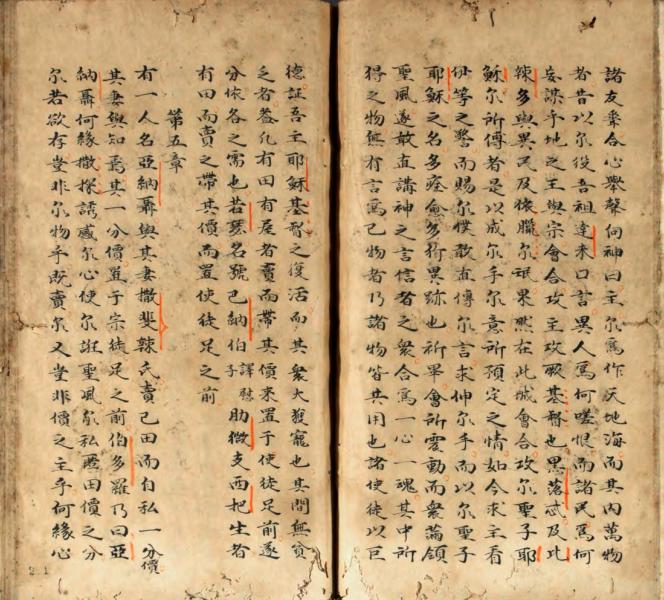 諸友牽合心舉聲向神曰主尔為作天地海而其內萬物
者昔以尔役吾祖達未口言異人為何嗟恨而諸民為何
妄謀乎地之王與宗會合攻主攻厥基督也黑落忒及比
辣多與異民及依臘尔氓果然在此城會合攻尔聖子耶
穌尔所傅者是以成尔手尔意所預定之情如今求主看
伊等之謷而賜尔僕敢直傳尔言求伸尔手而以尔聖子
耶穌之名多痊愈多術異跡也祈畢會所震動而衆滿領
聖風遂敢直講神之言信者之衆合為一心一魂其中所
得之物無有言為己物者乃諸物皆共用也諸使徒以巨
德証吾主耶穌基督之復活而其衆大獲寵也其間無貧
乏者蓋凡有田有屋者賣而帶其價來置于使徒足前遂
分依各之需也若瑟名號巴納伯譯慰子肋微支西把生者
有田而賣之帶其價而置使徒足之前
第五章
有一人名亞納聶與其妻撒斐辣氏賣己田而自私一分價
其妻與知焉其一分價置于宗徒足之前伯多羅乃曰亞
納聶何緣撒探誘惑尔心使尔誑聖風尔私匿田價之分
尔若欲存豈非尔物乎既賣尔又豈非價之主乎何緣心
21